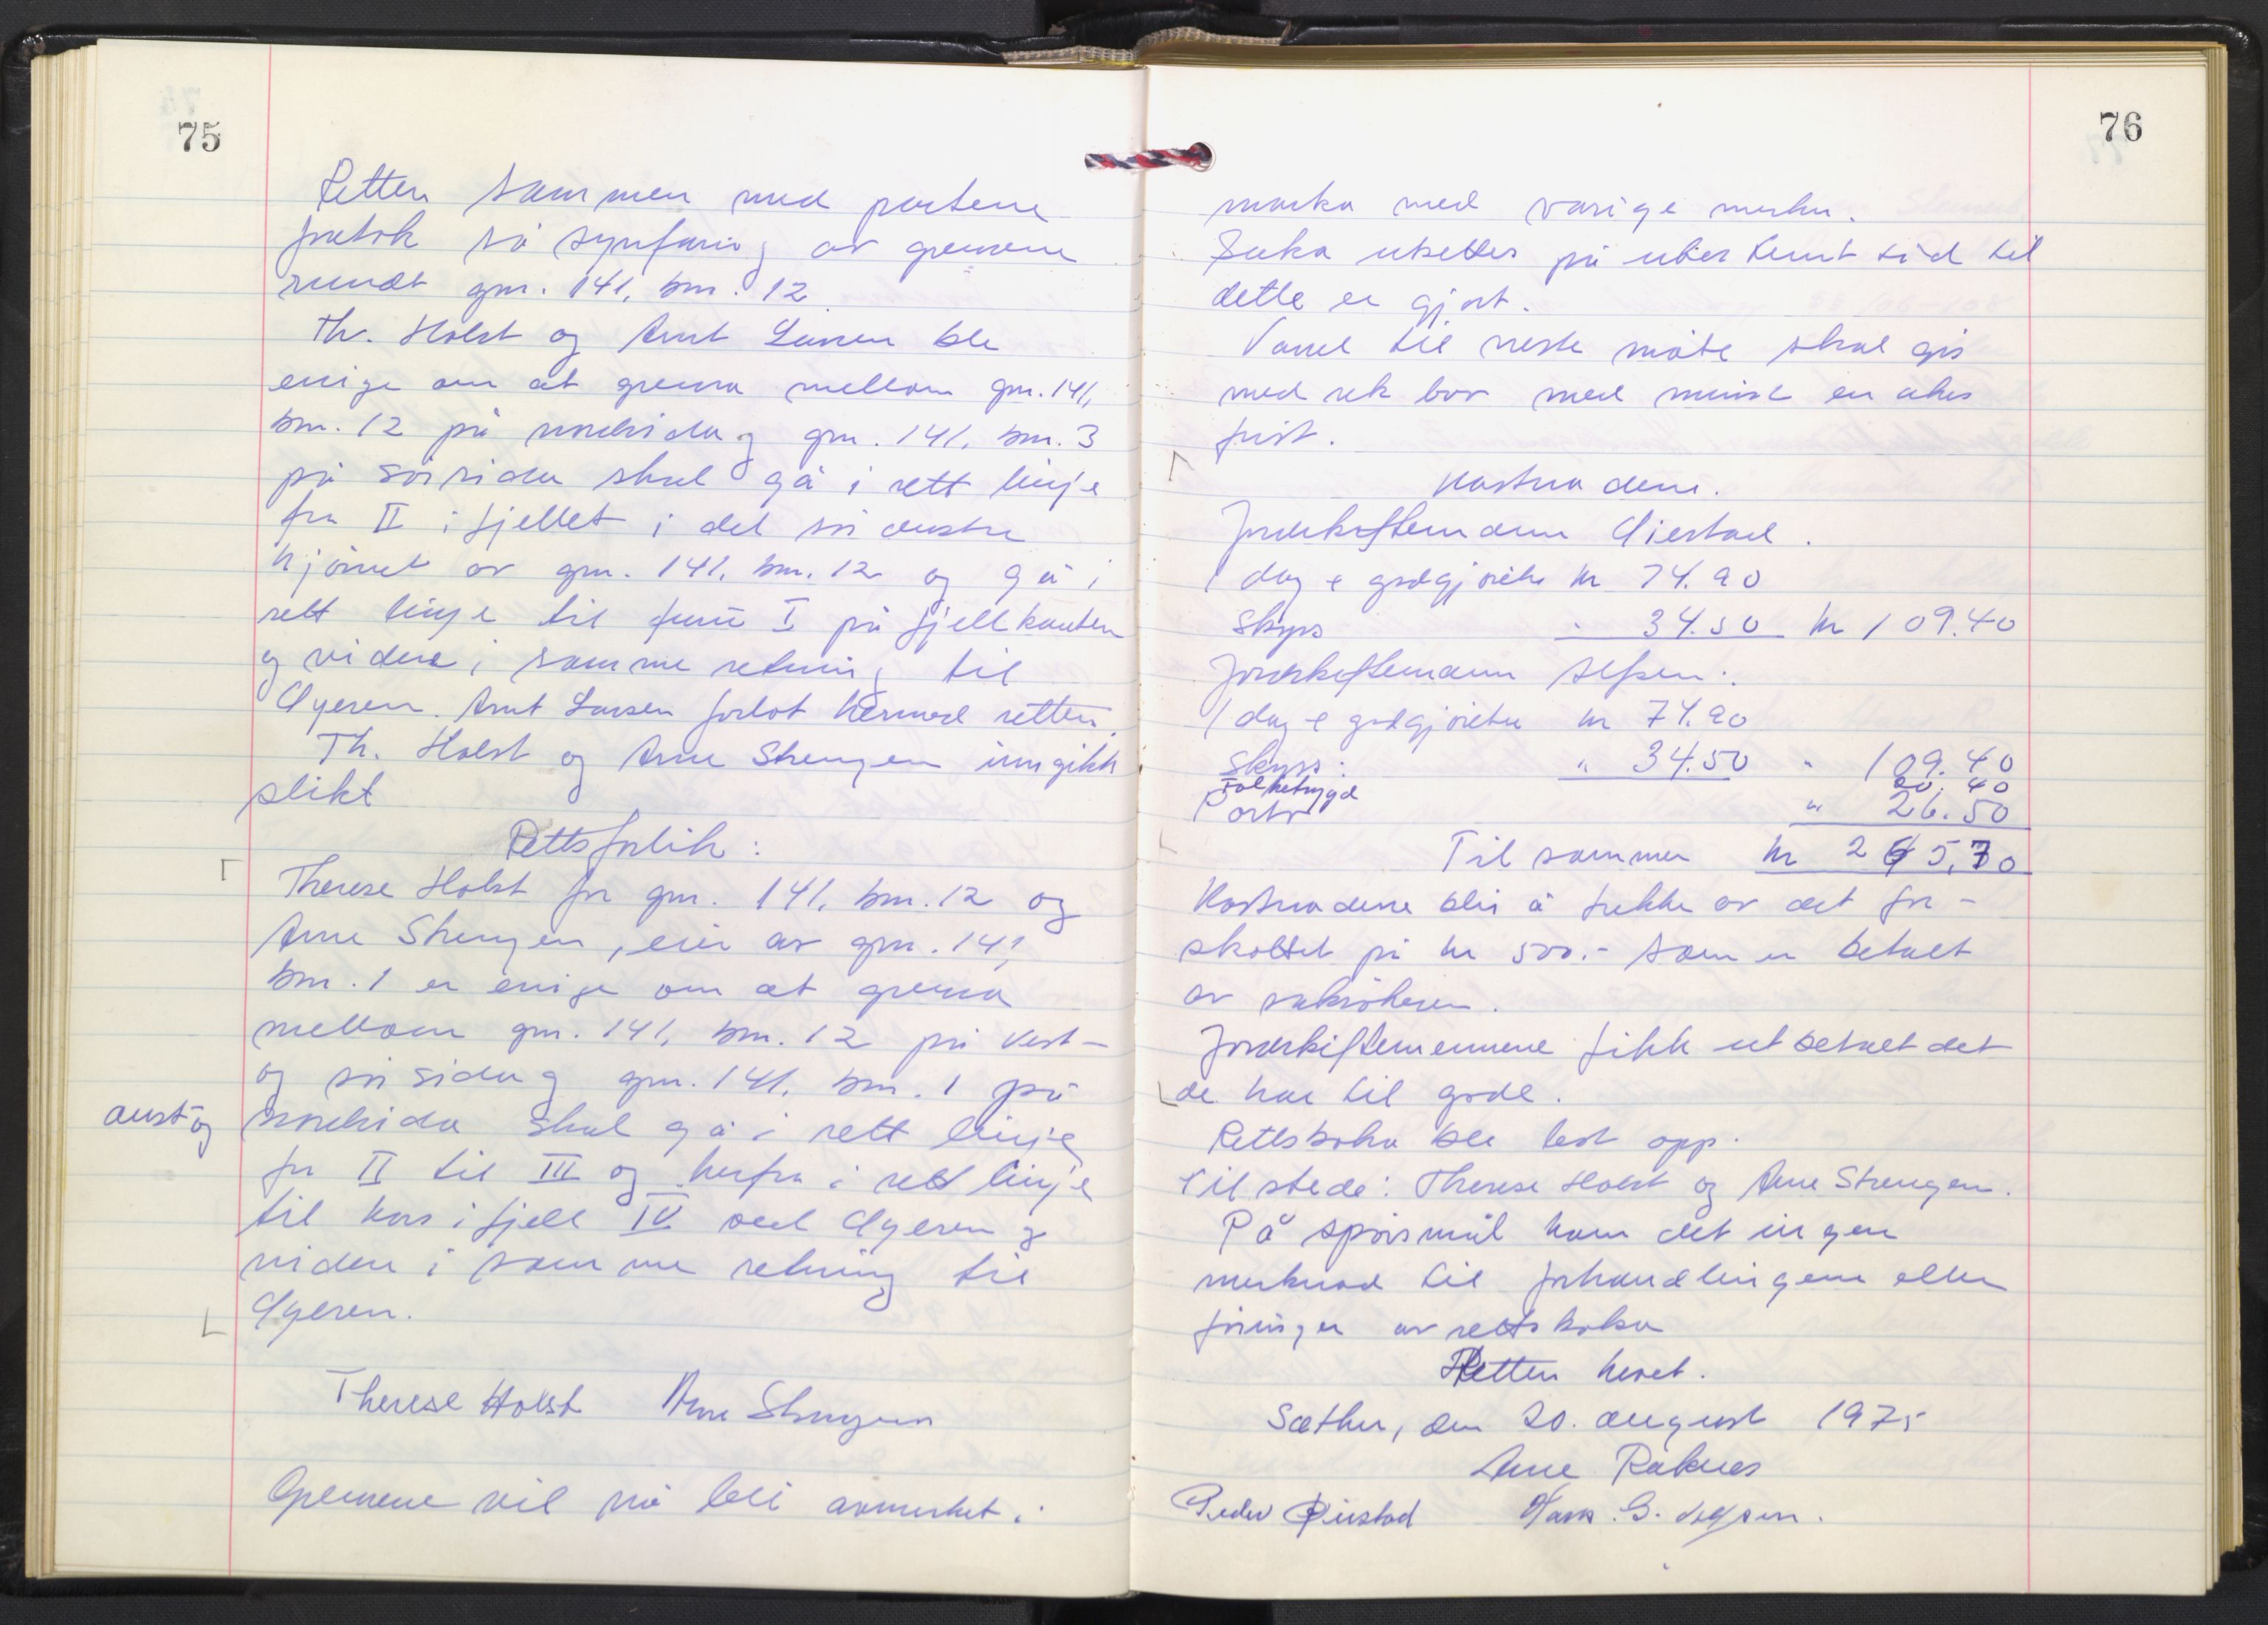 75
Retten sammen med partene
foretok så synfaring av grensene
rundt gnr. 141, bnr. 12
Th. Holst og Arnt Larsen ble
enige om at grensa mellom gnr. 141,
bnr. 12 på nordsida og gnr. 141, bnr. 3
på sørsida skal gå i rett linje
fra II i fjellet i det sør austre
hjørnet av gnr. 141, bnr. 12 og gå i
rett linje til punkt I på fjellkanten
og videre i samme retning til
Øyeren. Arnt Larsen forlot hermed retten.
Th. Holst og Arne Strengen inngikk
slikt
Rettsforlik:
Therese Holst for gnr. 141, bnr. 12 og
Arne Strengen, eier av gnr. 141,
bnr. 1 er enige om at grensa
mellom gnr. 141, bnr. 12 på vest-
og sørsida og gnr. 141, bnr. 1 på
aust- og nordsida skal gå i rett linje
fra II til III og herfra i rett linje
til kors i fjell IV ved Øyeren og
videre i samme retning til
Øyeren.
Therese Holst Arne Strengen
Grensene vil nå bli avmerket i
76
marka med varige merker.
Saka utsettes på ubestemt tid til
dette er gjort.
Varsel til neste møte skal gis
med rek brev med minst en ukes
frist.
Kostnadene.
Jordskiftemann Gierstad.
1 dag s godtgjørelse kr 74.90
Skyss " 34.50 kr 109.40
Jordskiftemann Alfsen:
1 dag s godtgjørelse kr 74.90
Skyss: " 34.50 " 109.40
Folketrygd 20.40
Porto " 26.50
Til sammen kr 265,70
Kostnadene blir å trekke av det for-
skottet på kr 500.- som er betalt
av saksøkeren.
Jordskiftemennene fikk utbetalt det
de har til gode.
Rettsboka ble lest opp.
Til stede: Therese Holst og Arne Strengen.
På spørsmål kom det ingen
merknad til forhandlingene eller
føringen av rettsboka
Retten hevet.
Sæther, den 20. august 1975
Arne Raknes
Peder Hans. G. Alfsen.